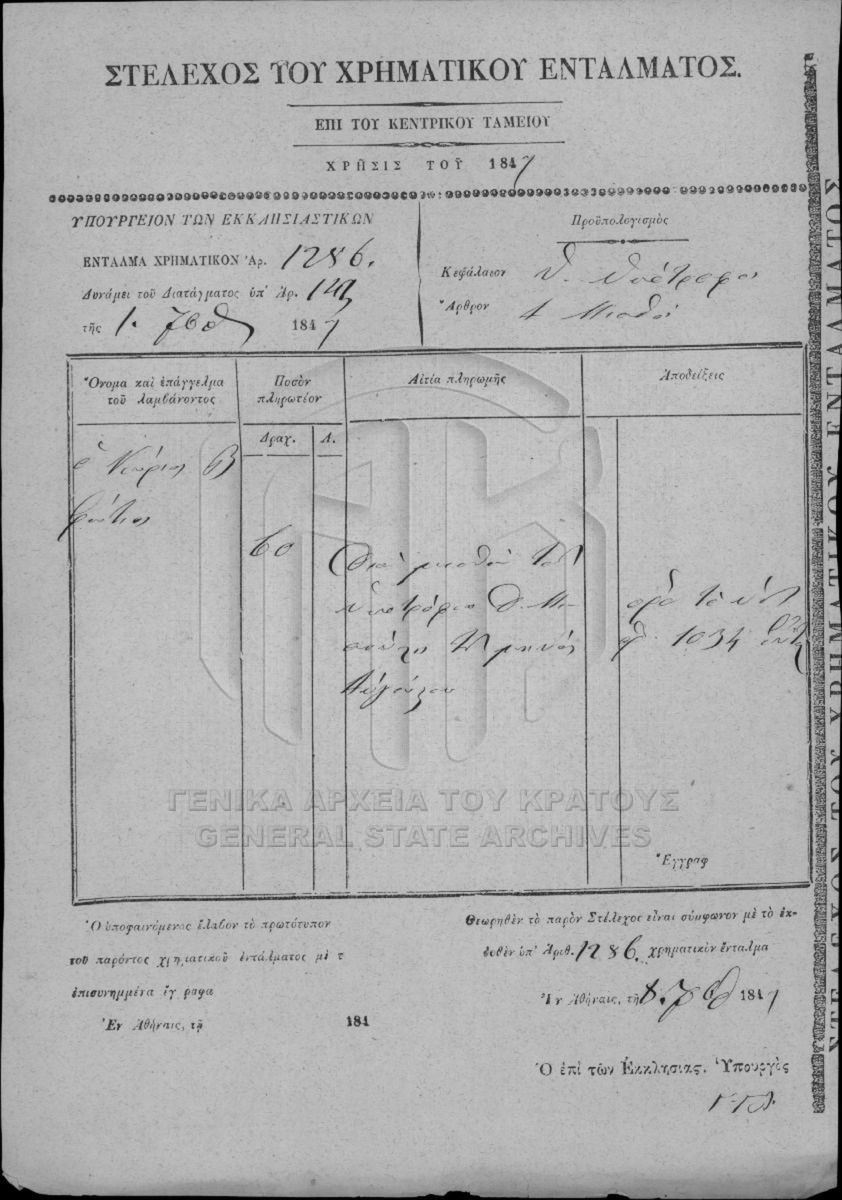 ΣΤΕΛΕΧΟΣ ΤΟΥ ΧΡΗΜΑΤΙΚΟΥ ΕΝΤΑΛΜΑΤΟΣ.
ΕΠΙ ΤΟΥ ΚΕΝΤΡΙΚΟΥ ΤΑΜΕΙΟΥ
ΧΡΗΣΙΣ ΤΟΥ 1847
ΥΠΟΥΡΓΕΙΟΝ ΤΩΝ ΕΚΚΛΗΣΙΑΣΤΙΚΩΝ
ΕΝΤΑΛΜΑ ΧΡΗΜΑΤΙΚΟΝ Ἀρ. 1286.
Δυνάμει τοῦ Διατάγματος ὑπ' Ἀρ.
τῆς 1. 7βρ 1847
Προϋπολογισμὸς
Κεφάλαιον Θ. Ὑπότροφοι
Ἄρθρον 1 Μισθοὶ
Ὄνομα καὶ ἐπάγγελμα
τοῦ λαμβάνοντος
Ποσὸν
πληρωτέον
Αἰτία πληρωμῆς
Ἀποδείξεις
Δραχ. Λ.
ὁ Κύριος
60
Διὰ μισθὸν τοῦ
ὑποτρόφου
μηνὸς
Αὐγούστου
ὅρα τὸ
1034
Ἔγγραφ
Ὁ ὑποφαινόμενος ἔλαβον τὸ πρωτότυπον
τοῦ παρόντος χρηματικοῦ ἐντάλματος μὲ τ
ἐπισυνημμένα ἔγραφα
Ἐν Ἀθήναις, τῇ 184
Θεωρηθὲν τὸ παρὸν Στέλεχος εἶναι σύμφωνον μὲ τὸ ἐκ-
δοθὲν ὑπ' Ἀριθ. 1286. χρηματικὸν ἔνταλμα
Ἐν Ἀθήναις, τῇ 8. 7βρ 1847
Ὁ ἐπὶ τῶν Ἐκκλησιας. Ὑπουργὸς
ΣΤΕΛΕΧΟΣ ΤΟΥ ΧΡΗΜΑΤΙΚΟΥ ΕΝΤΑΛΜΑΤΟΣ
ΓΕΝΙΚΑ ΑΡΧΕΙΑ ΤΟΥ ΚΡΑΤΟΥΣ
GENERAL STATE ARCHIVES